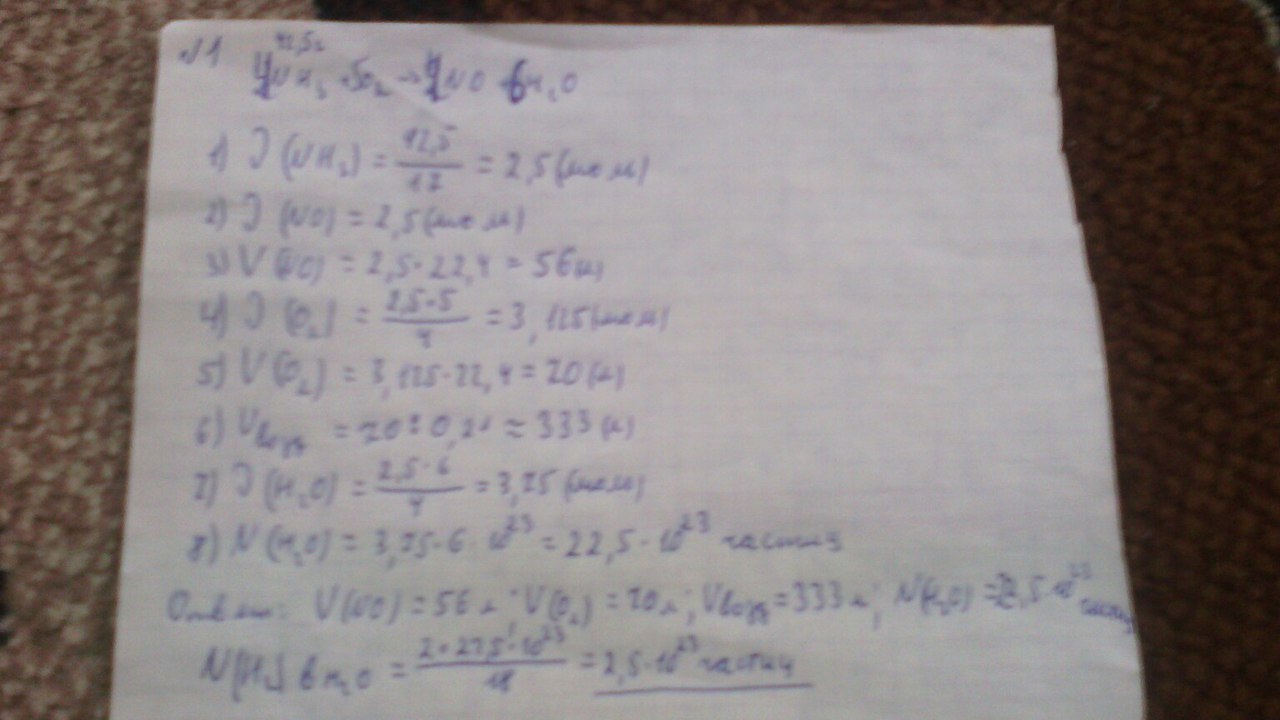 №1
42,5г
4NH₃ + 5O₂ → 4NO + 6H₂O
1) ν (NH₃) = 42,5/17 = 2,5 (моль)
2) ν (NO) = 2,5 (моль)
3) V (NO) = 2,5 · 22,4 = 56 (л)
4) ν (O₂) = 2,5·5/4 = 3,125 (моль)
5) V (O₂) = 3,125 · 22,4 = 70 (л)
6) Vвозд = 70 : 0,21 = 333 (л)
7) ν (H₂O) = 2,5·6/4 = 3,75 (моль)
8) N (H₂O) = 3,75 · 6 · 10²³ = 22,5 · 10²³ частиц
Ответ: V(NO) = 56 л; V(O₂) = 70 л; Vвозд = 333 л; N(H₂O) = 22,5·10²³ частиц
N(H) в H₂O = 2·22,5·10²³/18 = 2,5·10²³ частиц